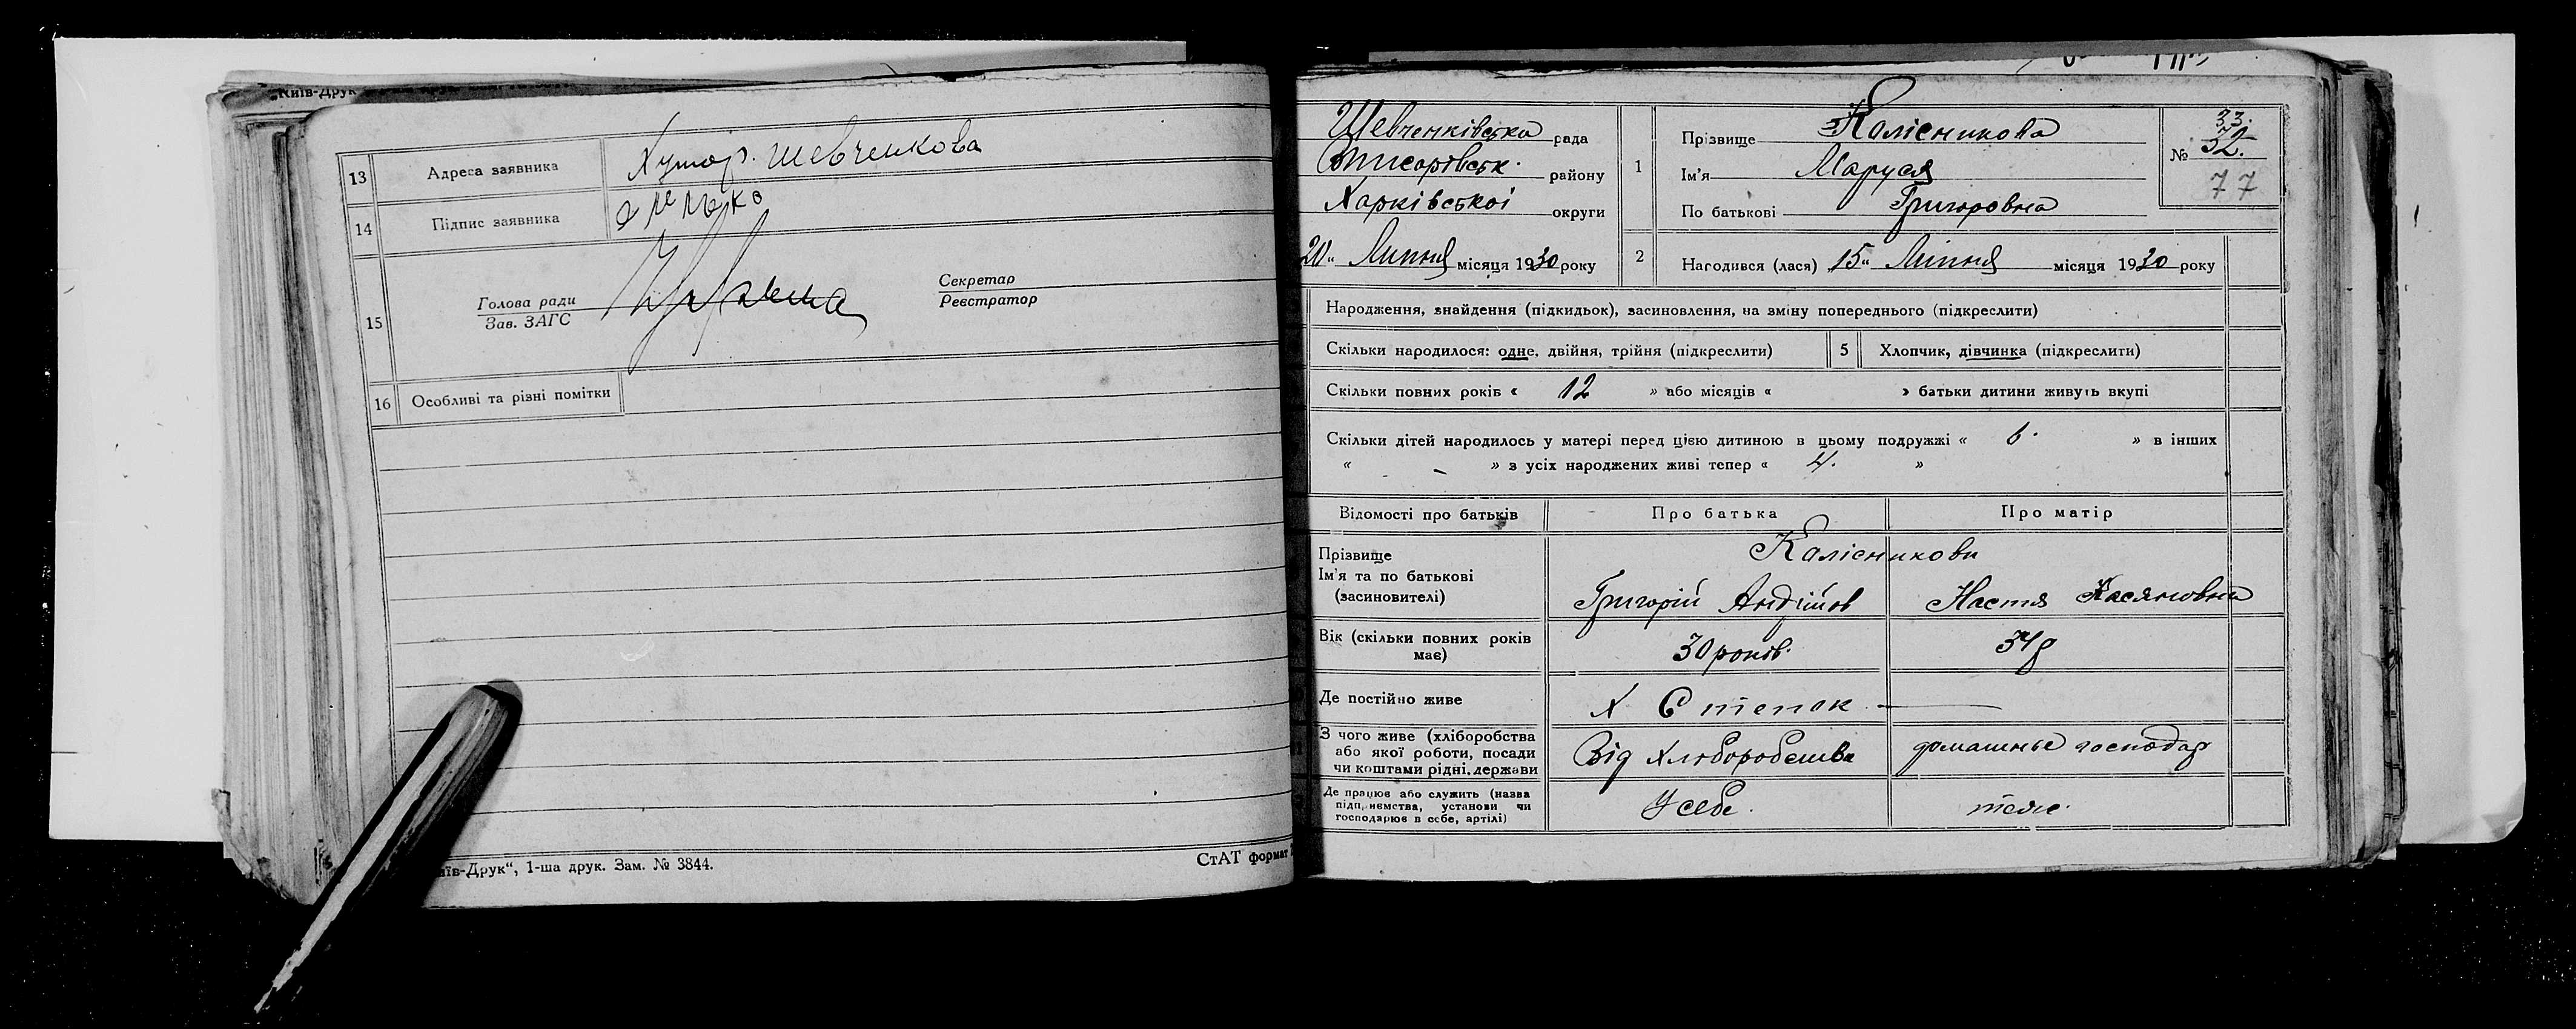 „Київ-Друк
13 Адреса заявника Хутор. Шевченкова
14 Підпис заявника
15 Голова ради
Зав. ЗАГС
Секретар
Реєстратор
16 Особливі та різні помітки
иїв-Друк“, 1-ша друк. Зам. № 3844.
СтАТ формат
Шевченківська рада
району
Харківської округи
20 „ Липня місяця 1930 року
1 Прізвище Калісникова
Ім'я Маруся
По батькові Григоровна
33.
№ 32.
77
2 Народився (лася) 15 „ Липня місяця 1930 року
Народження, знайдення (підкидьок), засиновлення, на зміну попереднього (підкреслити)
Скільки народилося: одне, двійня, трійня (підкреслити) 5 Хлопчик, дівчинка (підкреслити)
Скільки повних років « 12 » або місяців « » батьки дитини живуть вкупі
Скільки дітей народилось у матері перед цією дитиною в цьому подружжі « 6. » в інших
« - » з усіх народжених живі тепер « 4. »
Відомості про батьків Про батька Про матір
Прізвище Калісникови
Ім'я та по батькові
(засиновителі) Григорій Андійов Настя Касяновна
Вік (скільки повних років
має) 30 років. 34 р
Де постійно живе Х Степок —
З чого живе (хліборобства
або якої роботи, посади
чи коштами рідні, держави Від Хліборобства домашнье господар
Де працює або служить (назва
підприємства, установи чи
господарює в себе, артілі) У себе. теж.